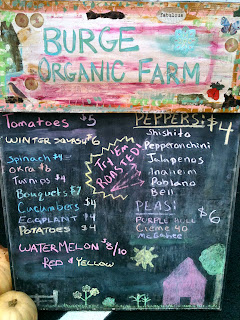 fabulous
BURGE
ORGANIC FARM
Tomatoes $5
WINTER SQUASH $6
Spinach $4
OKRA $6
Turnips $4
Bouquets $7
Cucumbers $4
EGGPLANT $4
POTATOES $4
WATERMELON $8/10
RED & YELLOW
Try 'Em
ROASTED!
PEPPERS: $4
Shishito
Pepperonchini
Jalapenos
Anaheim
Poblano
Bell
PEAS: $6
PURPLE HULL
Creme 40
McGahee